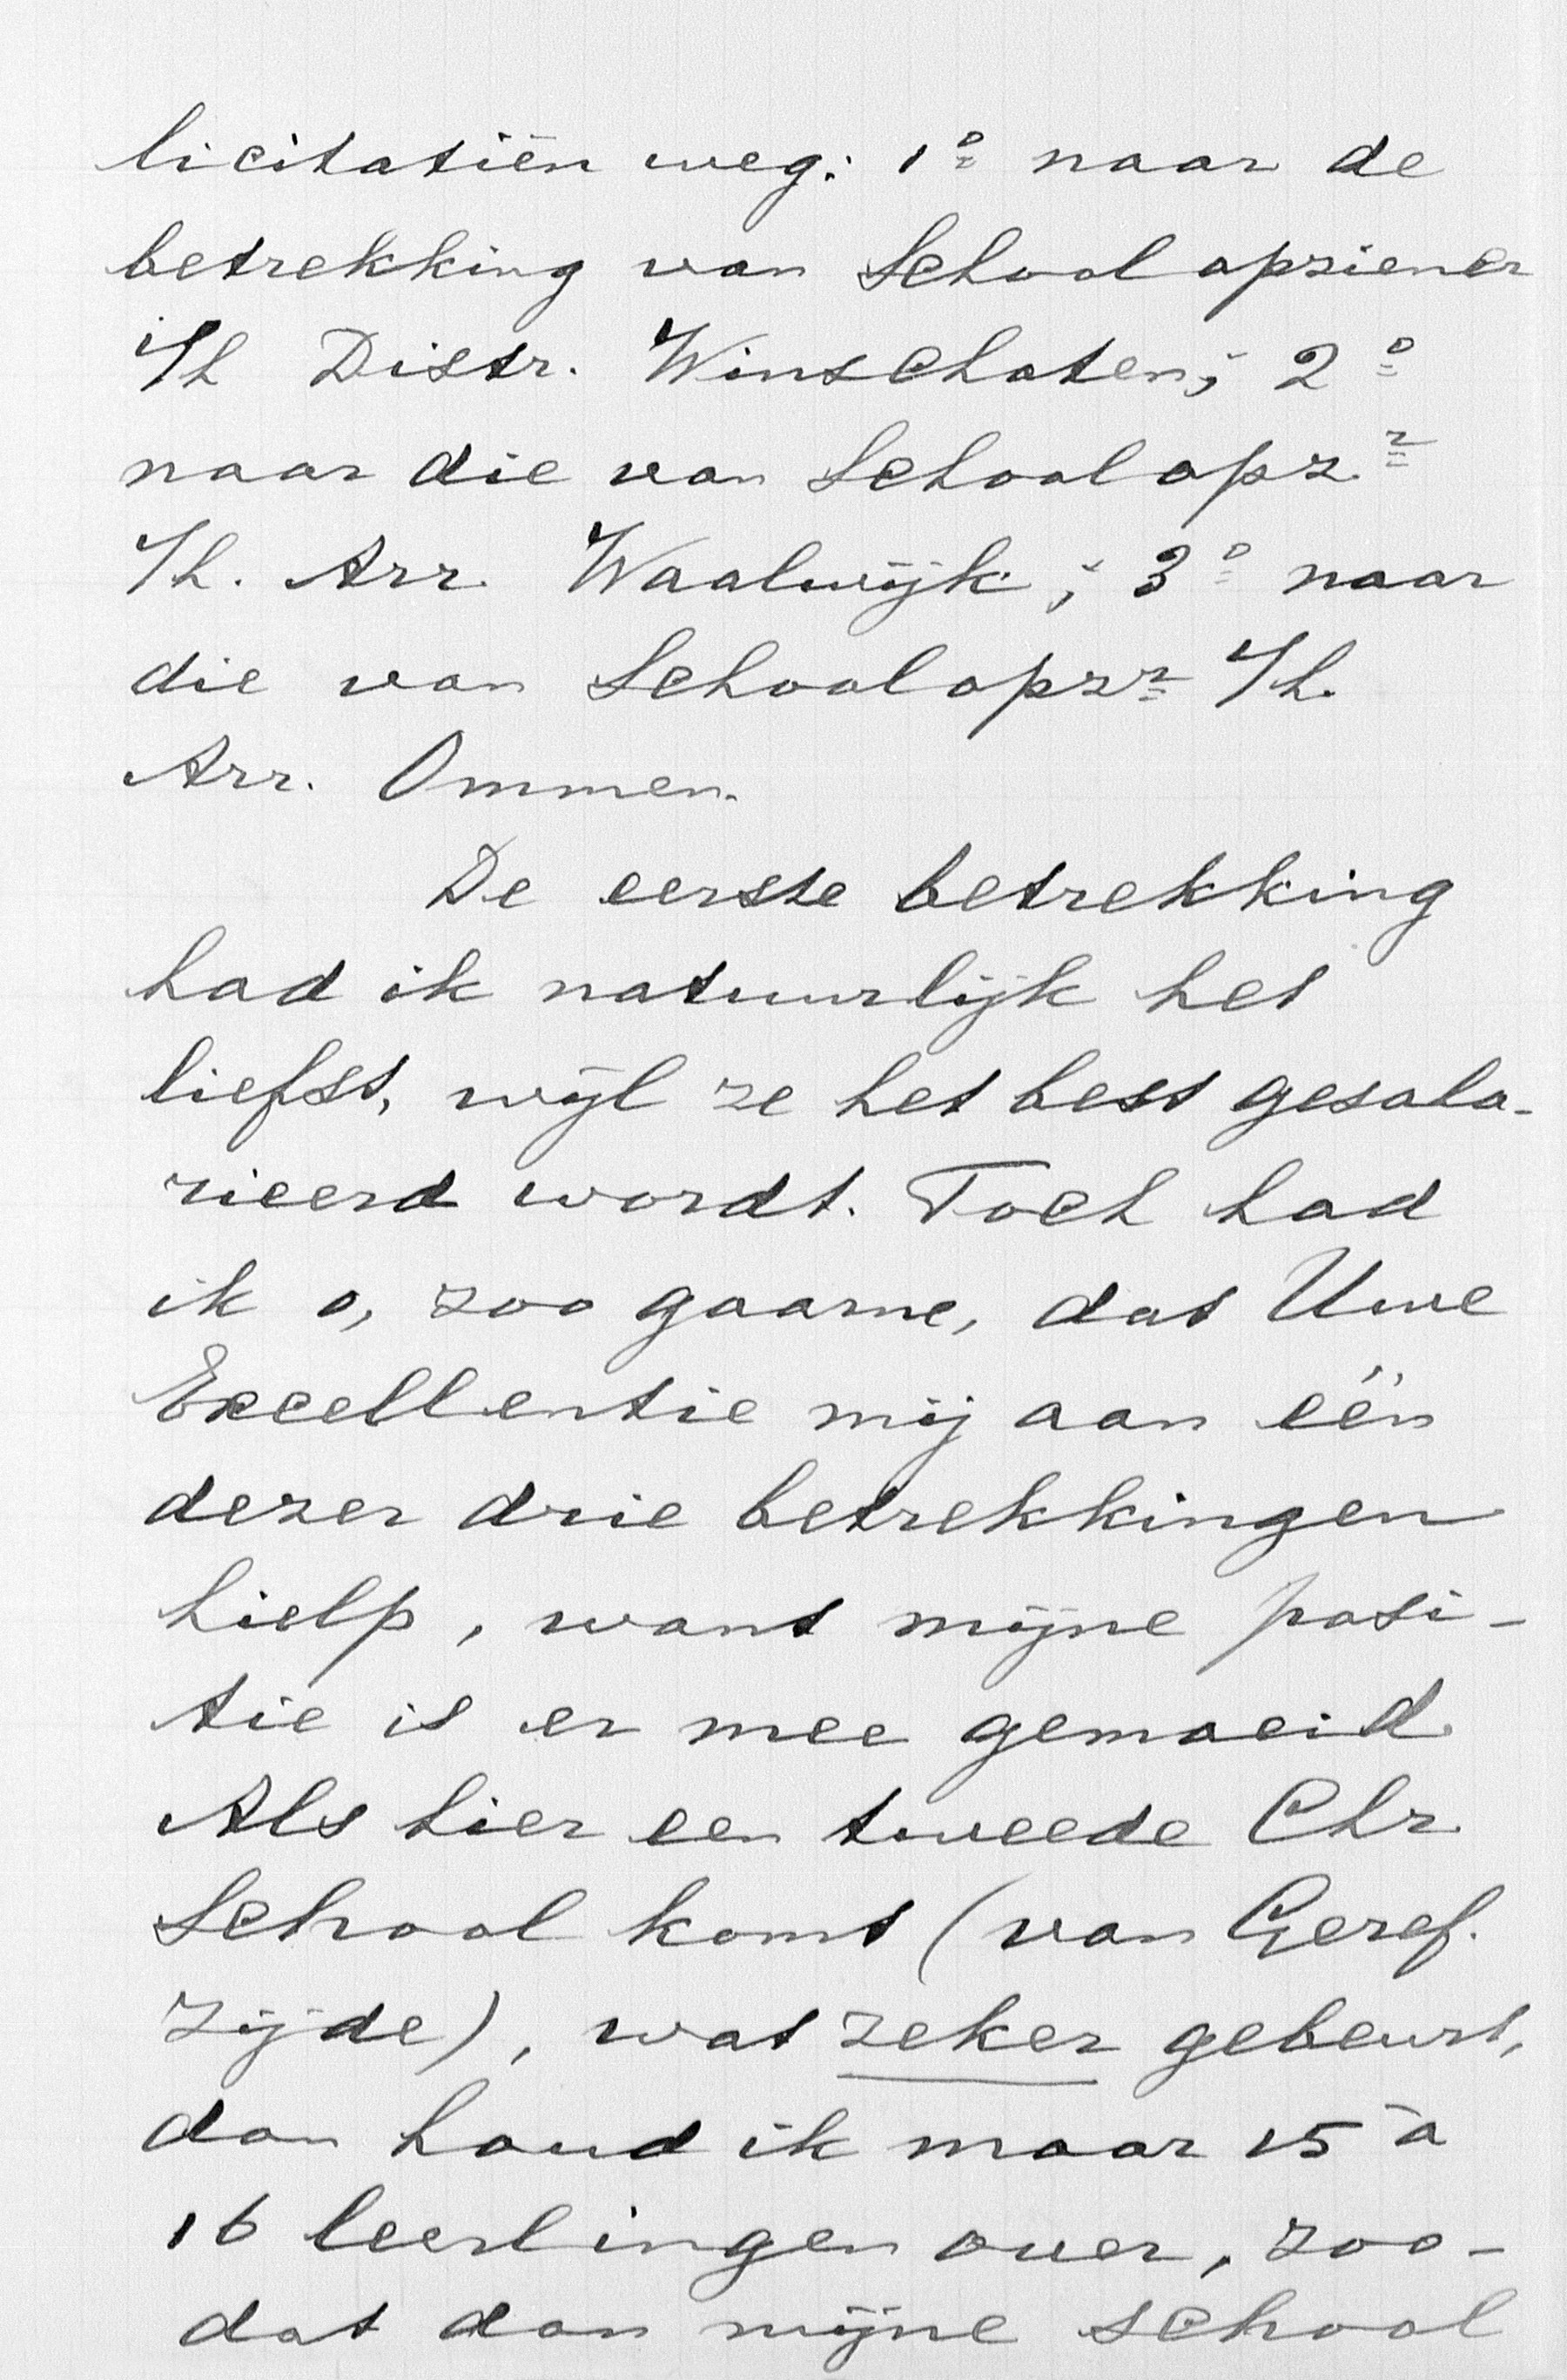 licitatiën weg: 1o naar de
betrekking van Schoolopziener
i/h Distr. Winschoten; 2o
naar die van Schoolopzr
i/h. Arr. Waalwijk; 3o naar
die van Schoolopzr i/h.
Arr. Ommen.
De eerste betrekking
had ik natuurlijk het
liefst, wijl ze het best gesala-
rieerd wordt. Toch had
ik o, zoo gaarne, dat Uwe
Excellentie mij aan één
dezer drie betrekkingen
hielp, want mijne posi-
tie is er mee gemoeid.
Als hier een tweede Chr.
School komt (van Geref.
zijde), wat zeker gebeurt,
dan houd ik maar 15 à
16 leerlingen over, zoo-
dat dan mijne school